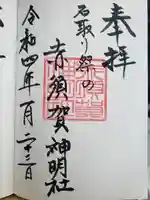 奉拝
石取り祭の
赤須賀神明社
令和四年一月二十二日